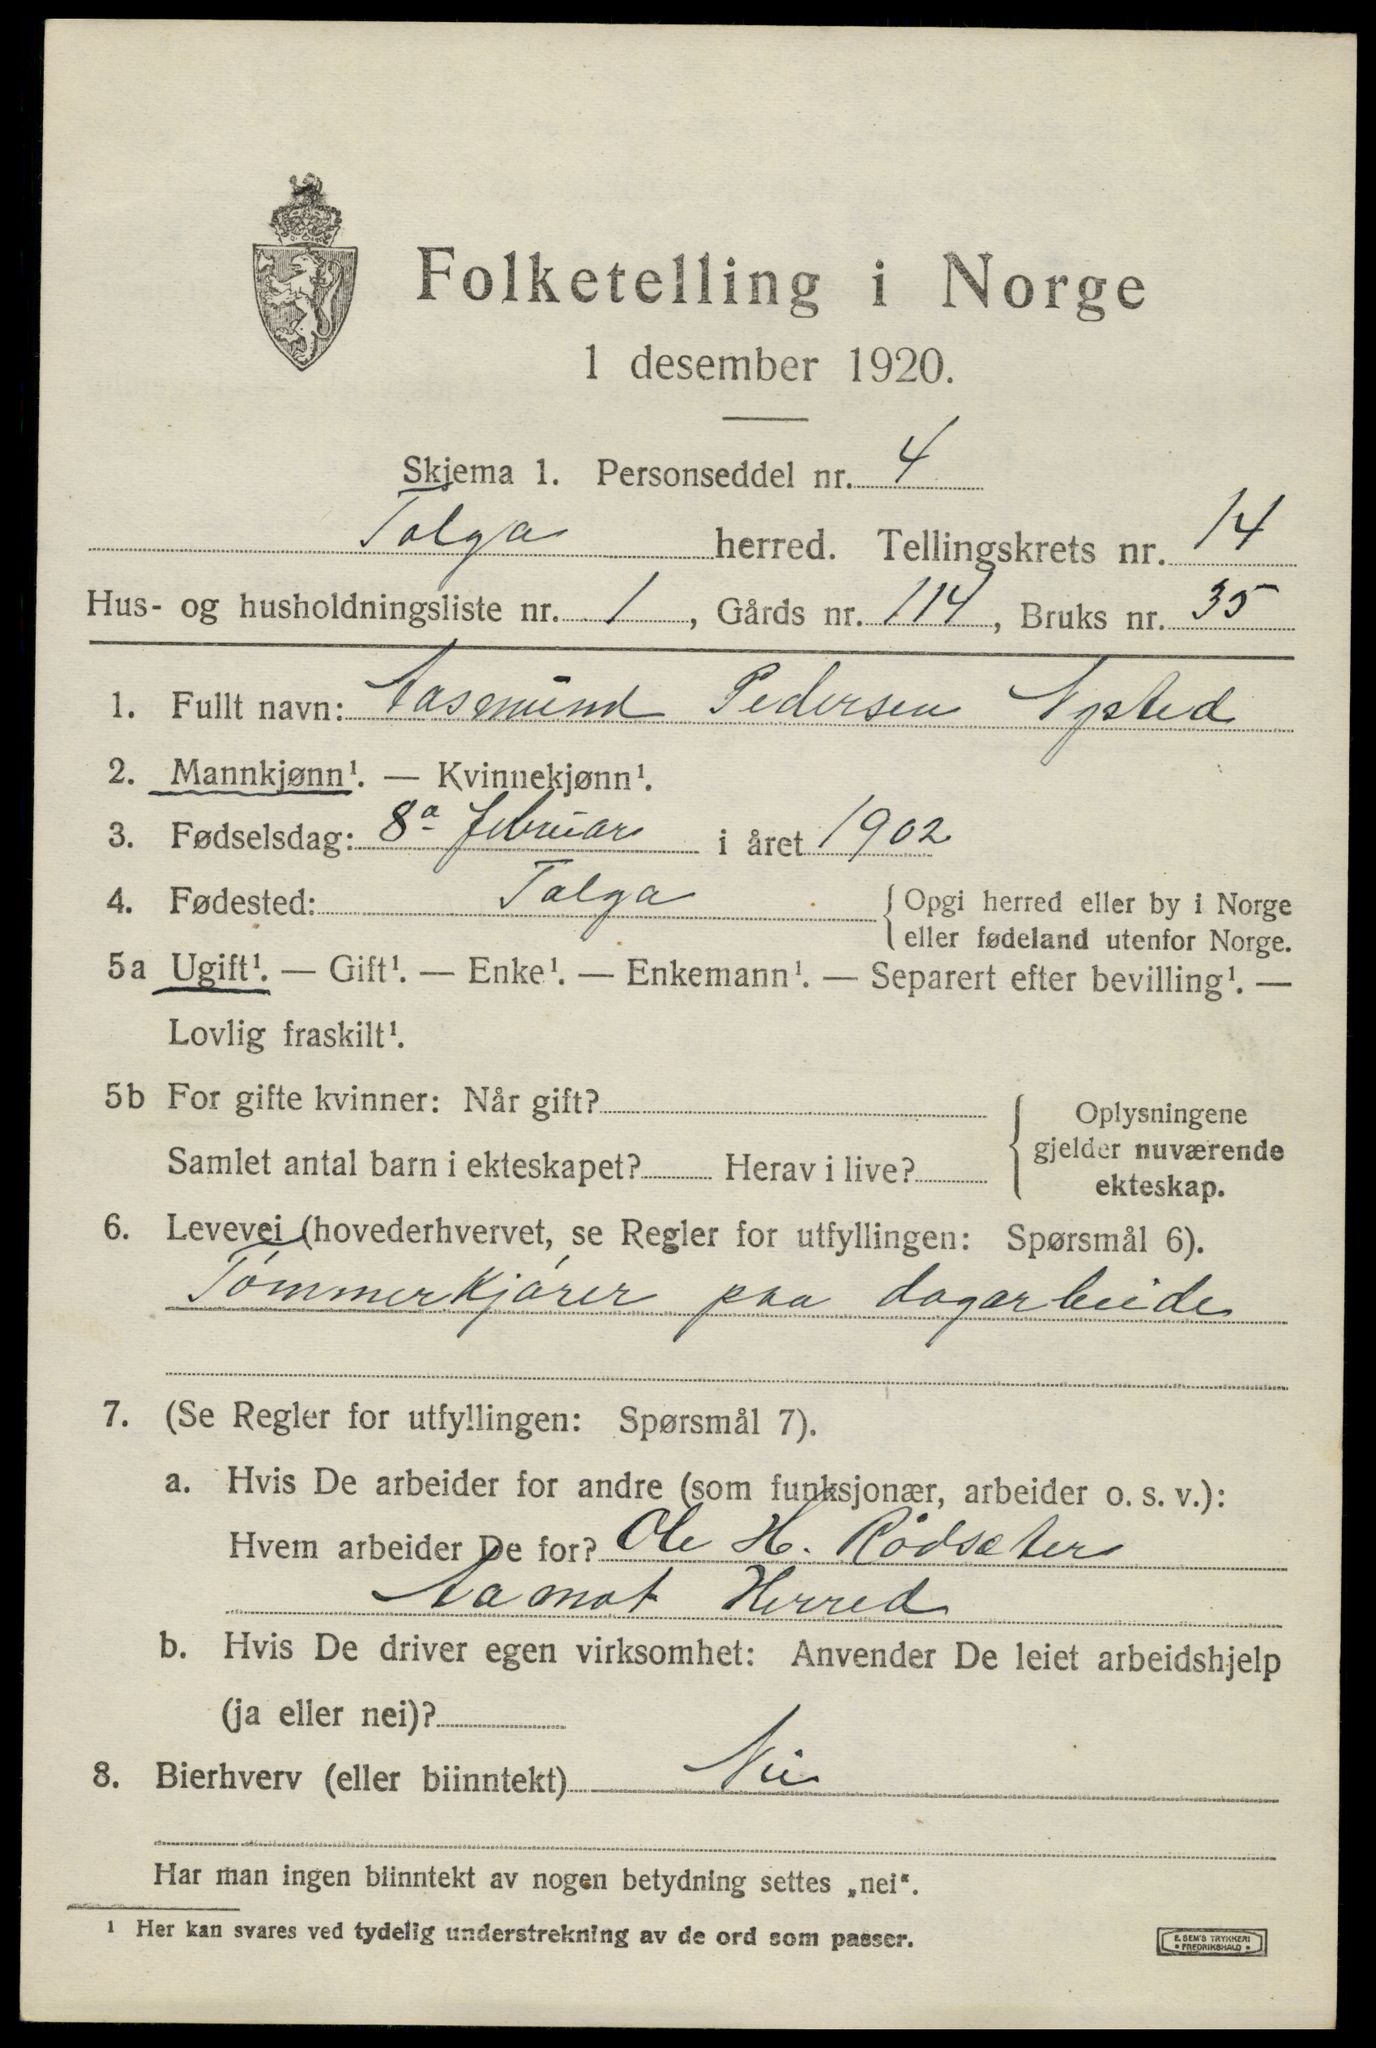 Folketelling i Norge
1 desember 1920.
Skjema 1. Personseddel nr. 4
Tolga herred. Tellingskrets nr. 14
Hus- og husholdningsliste nr. 1, Gårds nr. 114, Bruks nr. 35
1. Fullt navn: Aasmund Pedersen Nysted
2. Mannkjønn¹. — Kvinnekjønn¹.
3. Fødselsdag: 8a februar i året 1902
4. Fødested: Tolga {Opgi herred eller by i Norge
eller fødeland utenfor Norge.
5a Ugift¹. — Gift¹. — Enke¹. — Enkemann¹. — Separert efter bevilling¹. —
Lovlig fraskilt¹.
5b For gifte kvinner: Når gift? Oplysningene
gjelder nuværende
Samlet antal barn i ekteskapet? Herav i live? ekteskap.
6. Levevei (hovederhvervet, se Regler for utfyllingen: Spørsmål 6).
Tømmerkjører paa dagarbeide
7. (Se Regler for utfyllingen: Spørsmål 7).
a. Hvis De arbeider for andre (som funksjonær, arbeider o. s. v.):
Hvem arbeider De for? Ole H. Rödsæter
Aamot Herred
b. Hvis De driver egen virksomhet: Anvender De leiet arbeidshjelp
(ja eller nei)?
8. Bierhverv (eller biinntekt) Nei
Har man ingen biinntekt av nogen betydning settes „nei".
¹ Her kan svares ved tydelig understrekning av de ord som passer.
E. SEM'S TRYKKERI
• FREDRIKSHALD •